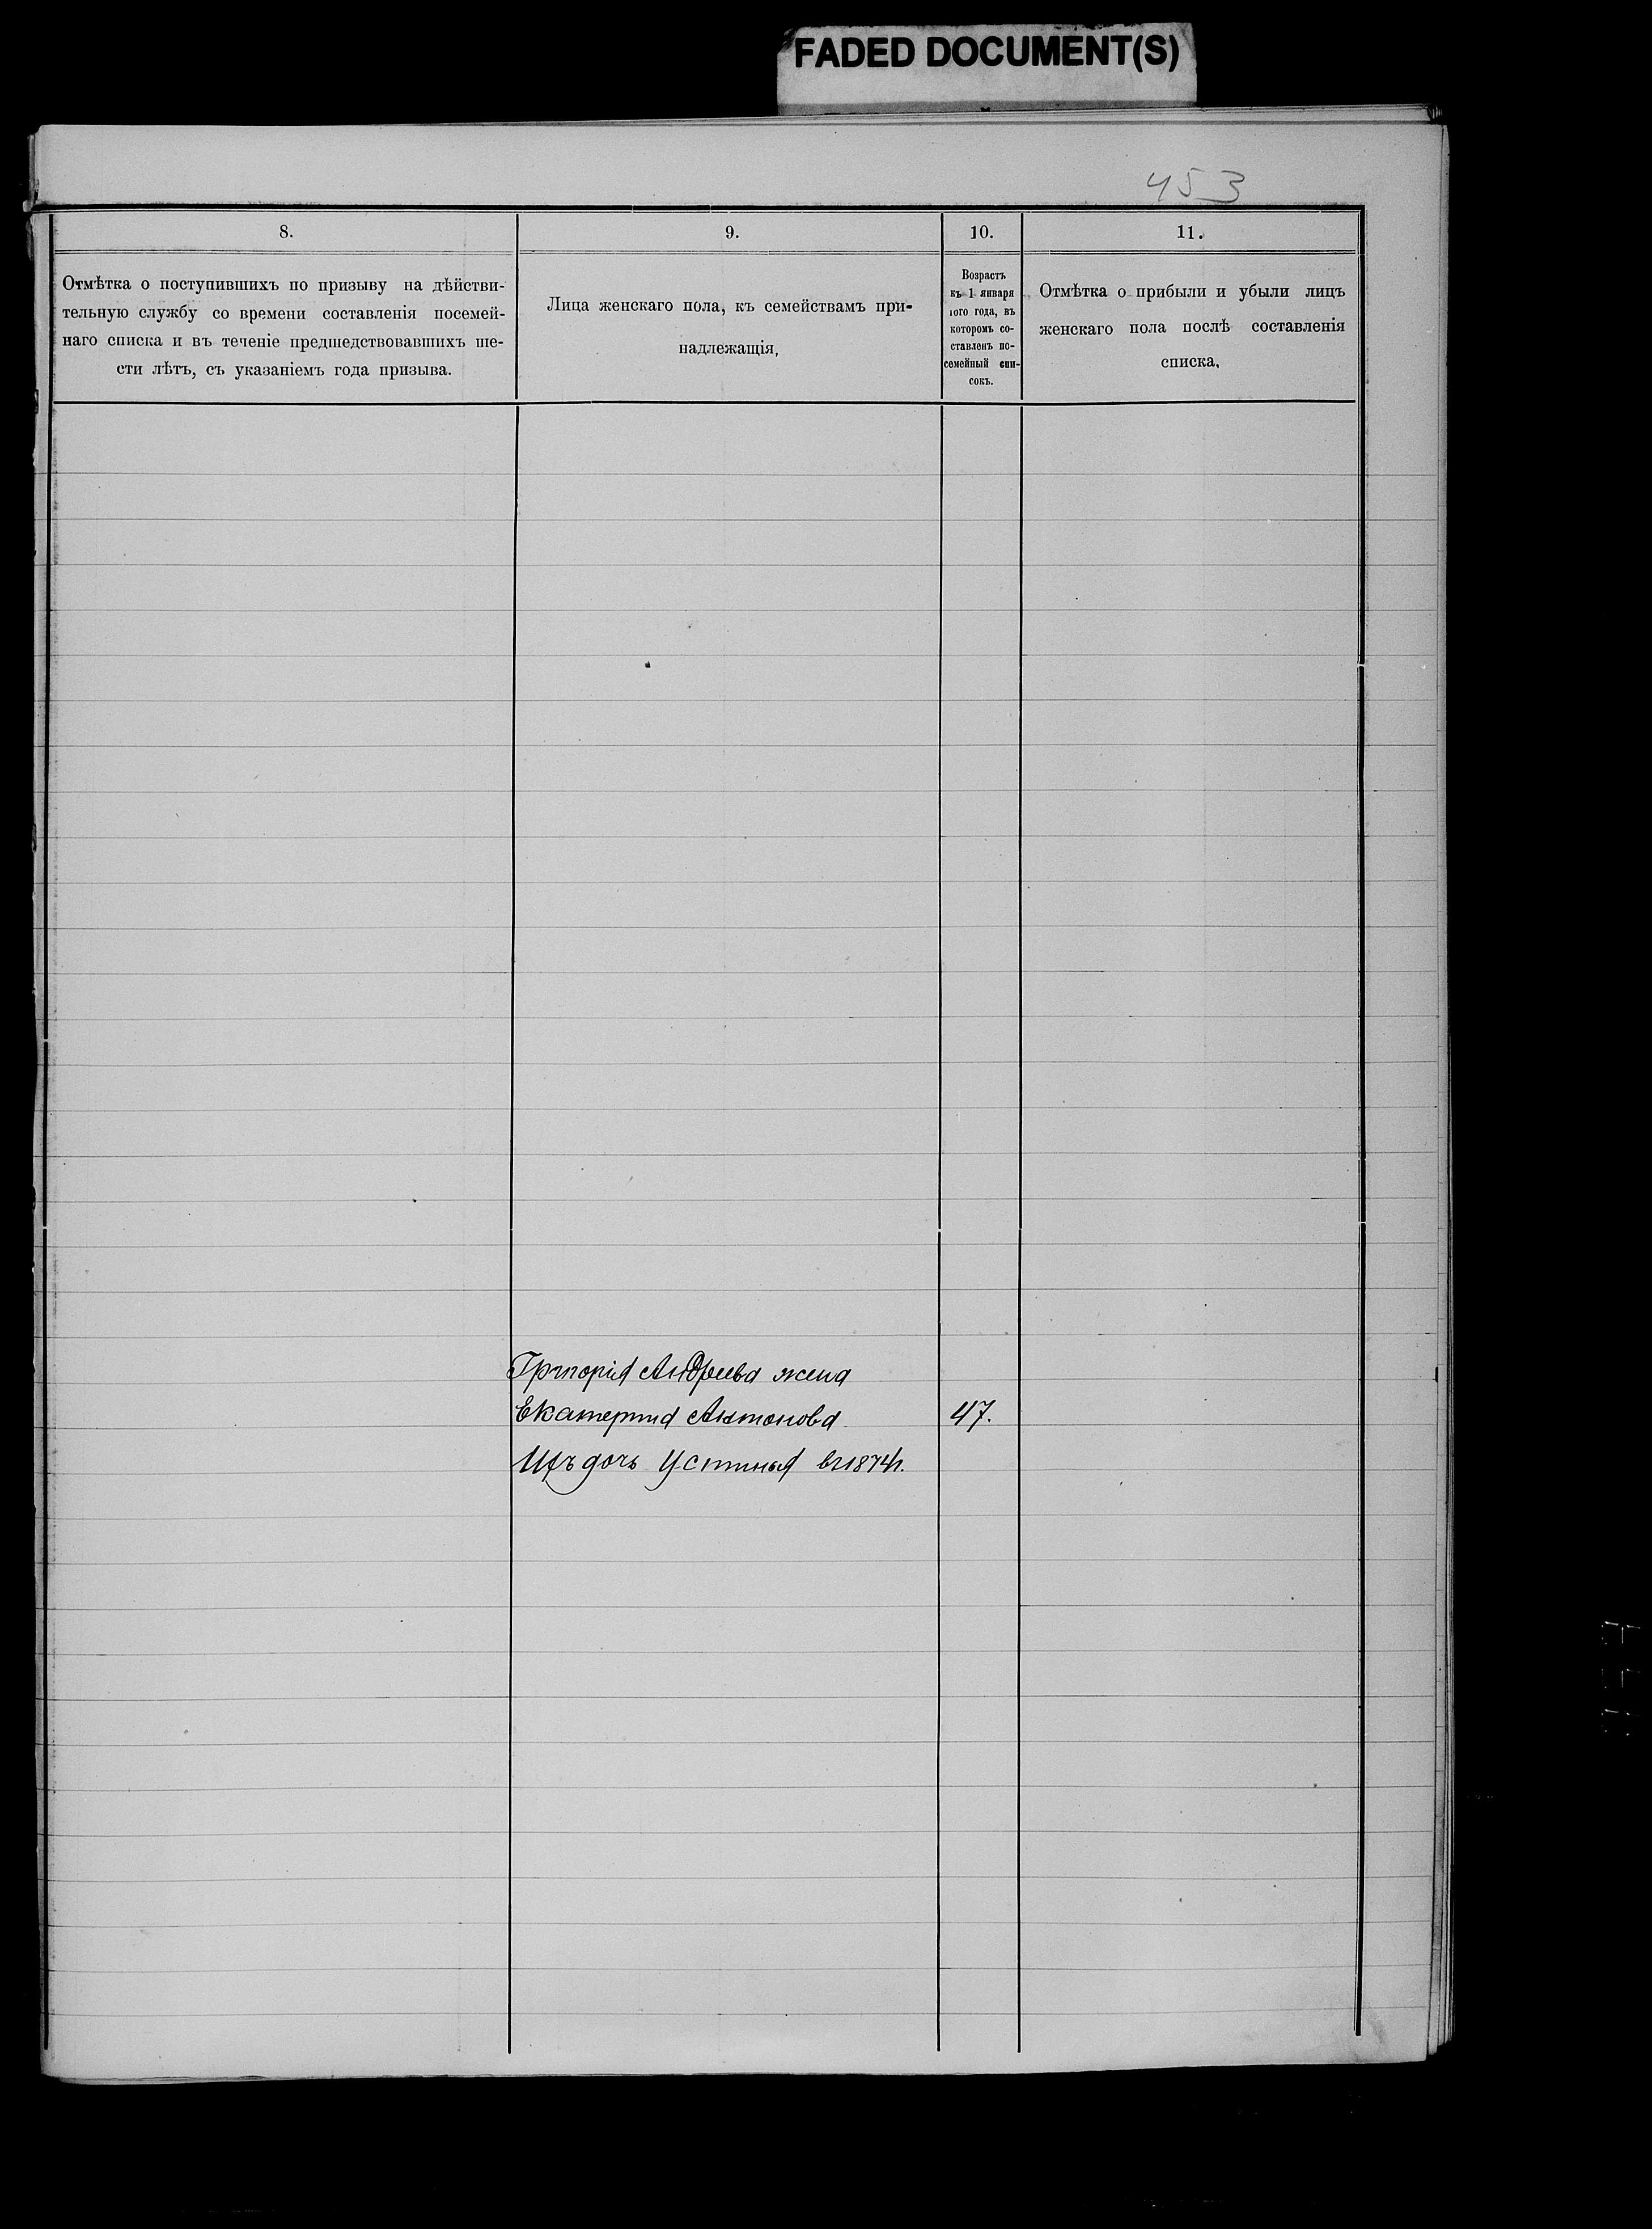 FADED DOCUMENT(S)
453
8.
Отмѣтка о поступившихъ по призыву на дѣйстви-
тельную службу со времени составленія посемей-
наго списка и въ теченіе предшедствовавшихъ ше-
сти лѣтъ, съ указаніемъ года призыва.
9.
Лица женскаго пола, къ семействамъ при-
надлежащія,
10.
Возрастъ
къ 1 января
того года, въ
которомъ со-
ставленъ по-
семейный спи-
сокъ.
11.
Отмѣтка о прибыли и убыли лицъ
женскаго пола послѣ составленія
списка,
Григорія Андреева жена
Екатерина Антонова 47.
Ихъ дочь Устинья 1874г.